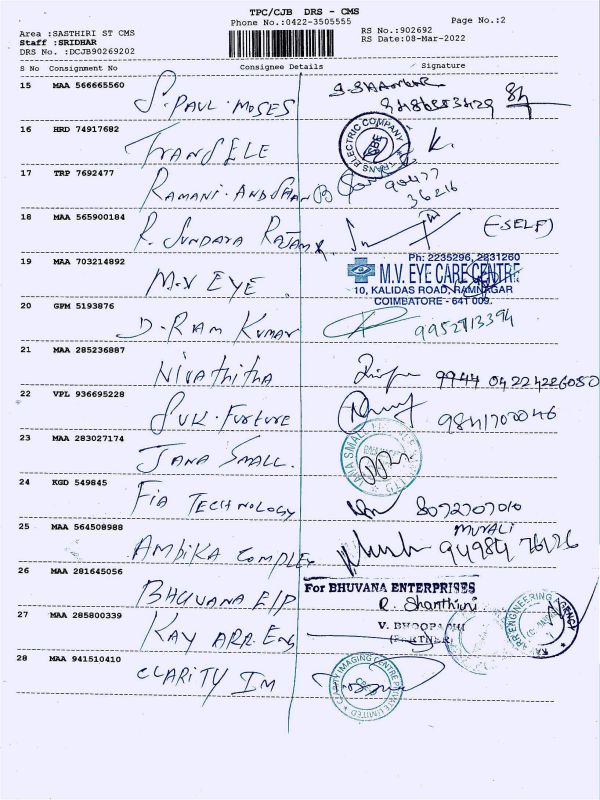 TPC/CJB DRS - CMS
Phone No.:0422-3505555
Page No.:2
Area :SASTHIRI ST CMS
Staff :SRIDHAR
DRS No. :DCJB90269202
RS No.:902692
RS Date:08-Mar-2022
S No Consignment No Consignee Details Signature
15 MAA 566665560
S. PAUL. MOSES
16 HRD 74917682
TRANS ELE
TRANS ELECTRIC COMPANY
K.
17 TRP 7692477
RAMANI. 
90477
36216
18 MAA 565900184
R. SUNDARA RAJAN
(-SELF)
19 MAA 703214892
M.V EYE
Ph: 2235296, 2231260
M.V. EYE CARE CENTRE
10, KALIDAS ROAD, RAMNAGAR
COIMBATORE - 641 009.
20 GPM 5193876
D. RAM KUMAR
9952713394
21 MAA 285236887
Nivathitha
9944 04224226050
22 VPL 936695228
SUK. FURTURE
9841700046
23 MAA 283027174
JANA SMALL.
24 KGD 549845
FIA TECHNOLOGY
8072707010
25 MAA 564508988
AMBIKA COMPLEX
MURALI
26 MAA 281645056
BHUVANA E/P
For BHUVANA ENTERPRISES
R. Shanthini
V. BHOOPATHI
(PARTNER)
27 MAA 285800339
KAY ARR. Eng
28 MAA 941510410
CLARITY IM
CLARITY IMAGING CENTRE PRIVATE LIMITED